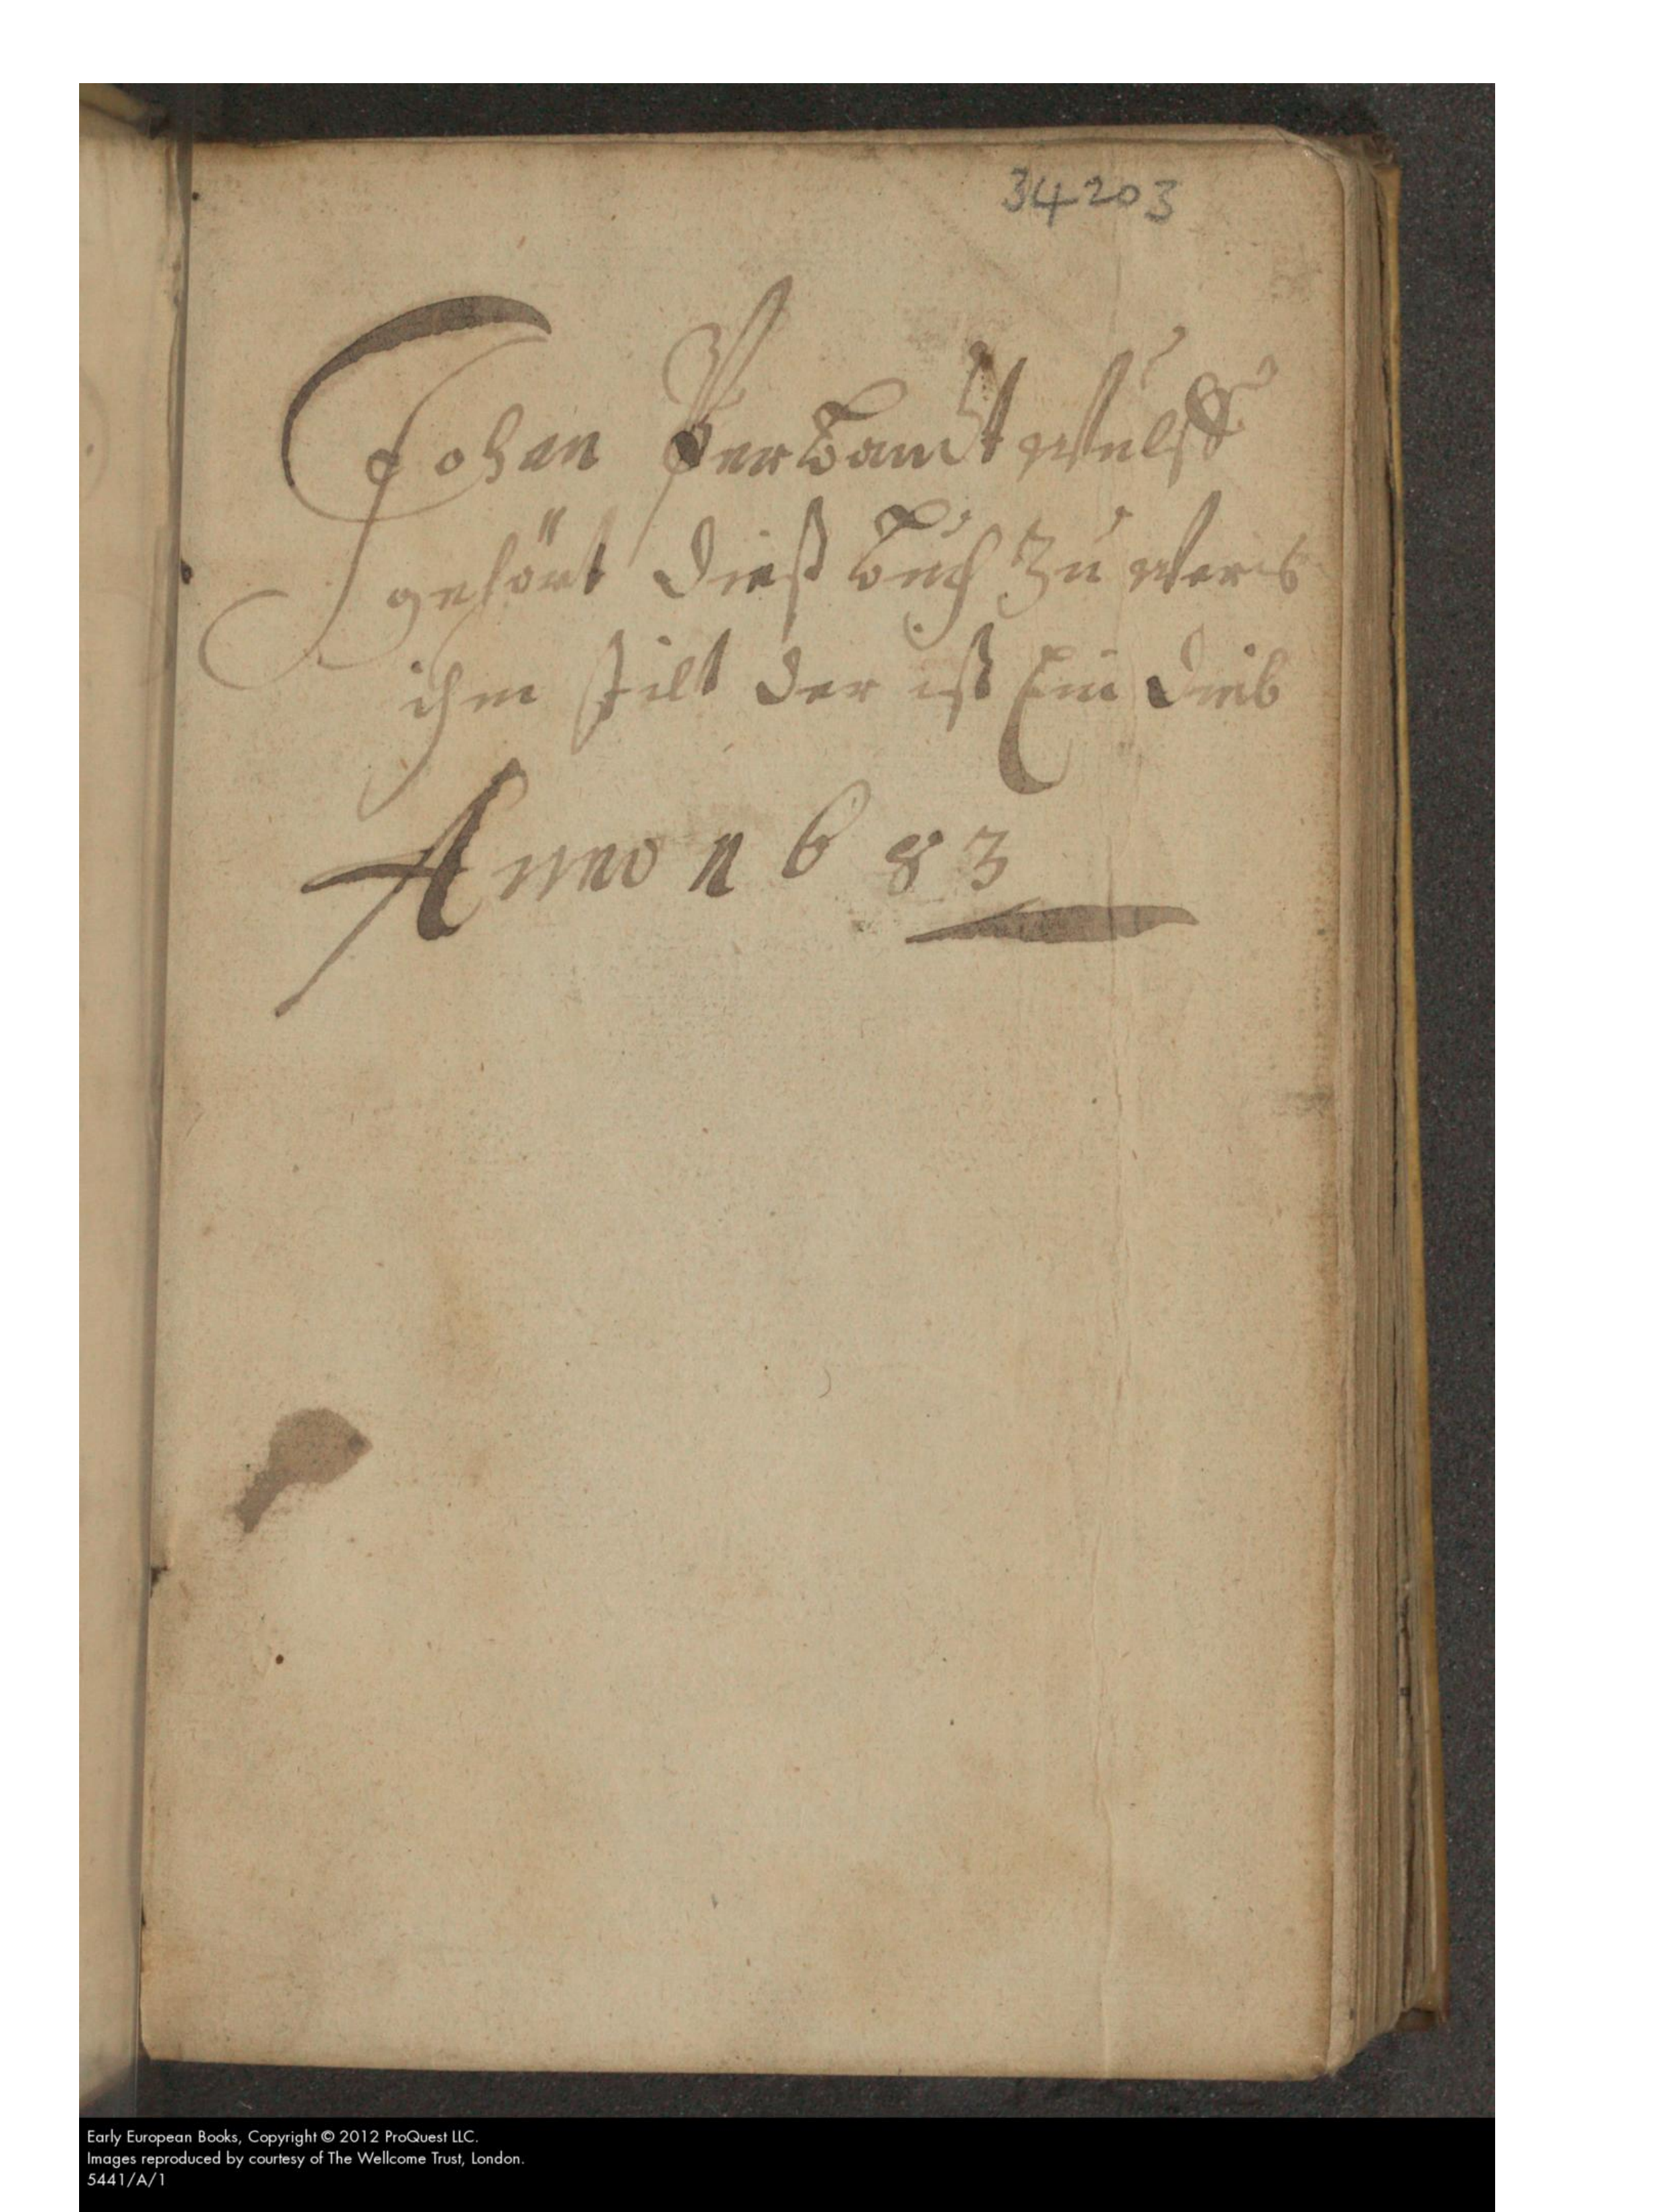 34203
Johan
gehört dieß buch zu wer es
ihm stilt der ist Ein dieb
Anno 1683
Early European Books, Copyright © 2012 ProQuest LLC.
Images reproduced by courtesy of The Wellcome Trust, London.
5441/A/1